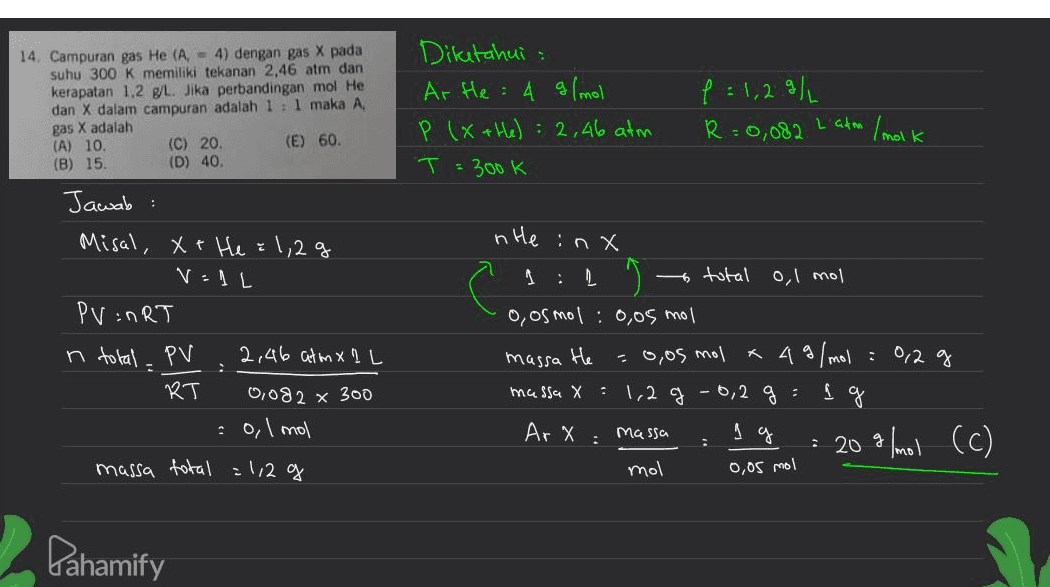 14. Campuran gas He (A, = 4) dengan gas X pada
suhu 300 K memiliki tekanan 2,46 atm dan
kerapatan 1,2 g/L. Jika perbandingan mol He
dan X dalam campuran adalah 1 : 1 maka A,
gas X adalah
(A) 10. (C) 20. (E) 60.
(B) 15. (D) 40.
Diketahui :
Ar He : 4 g/mol ρ = 1,2 g/L
P (X + He) : 2,46 atm R = 0,082 L atm / mol K
T = 300 K
Jawab :
Misal, X + He = 1,2 g
V = 1 L
PV = nRT
n total = PV : 2,46 atm x 1 L
RT 0,082 x 300
: 0,1 mol
massa total = 1,2 g
n He : n X
1 : 1 → total 0,1 mol
0,05 mol : 0,05 mol
massa He = 0,05 mol x 4 g/mol = 0,2 g
massa X = 1,2 g - 0,2 g = 1 g
Ar X : massa : 1 g : 20 g/mol (C)
mol 0,05 mol
Pahamify